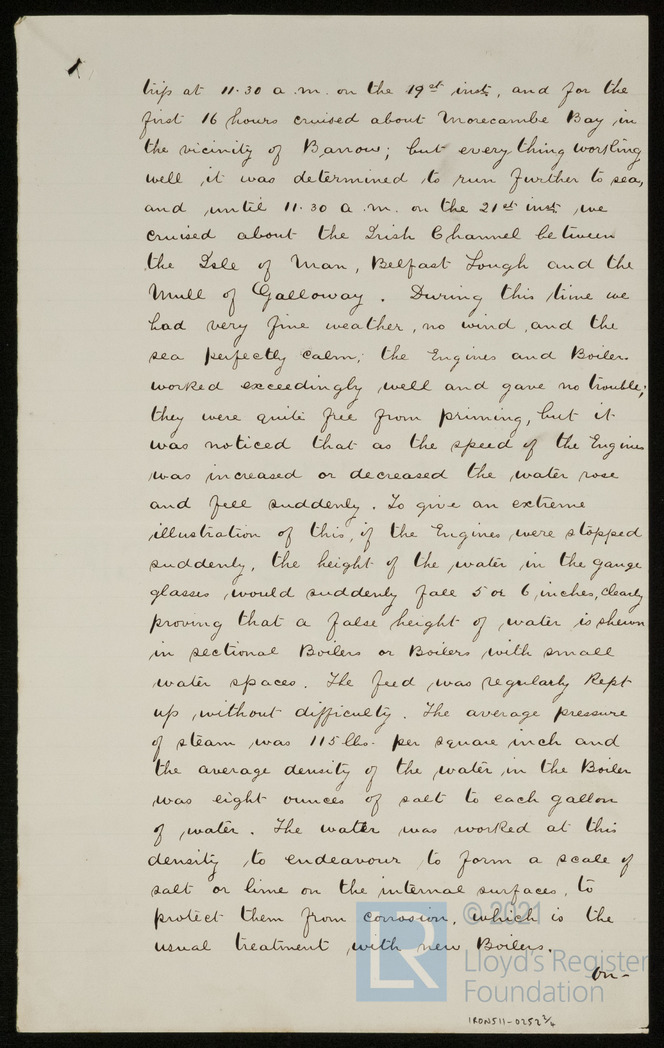 trip at 11.30 a.m. on the 19st inst, and for the
first 16 hours cruised about Morecambe Bay in
the vicinity of Barrow; but every thing working
well it was determined to run further to sea,
and until 11.30 a.m. on the 21st inst. we
cruised about the Irish Channel between
the Isle of Man, Belfast Lough and the
Mull of Galloway. During this time we
had very fine weather, no wind, and the
sea perfectly calm; the Engines and Boilers
worked exceedingly well and gave no trouble;
they were quite free from priming, but it
was noticed that as the speed of the Engines
was increased or decreased the water rose
and fell suddenly. To give an extreme
illustration of this, if the Engines were stopped
suddenly, the height of the water in the gauge
glasses would suddenly fall 5 or 6 inches, clearly
proving that a false height of water is shewn
in sectional Boilers or Boilers with small
water spaces. The feed was regularly kept
up without difficulty. The average pressure
of steam was 115 lbs. per square inch and
the average density of the water in the Boiler
was eight ounces of salt to each gallon
of water. The water was worked at this
density to endeavour to form a scale of
salt or lime on the internal surfaces, to
protect them from corrosion, which is the
usual treatment with new Boilers.
On-
LR
© 2021
Lloyd's Register
Foundation
IRON511-0252 2/6